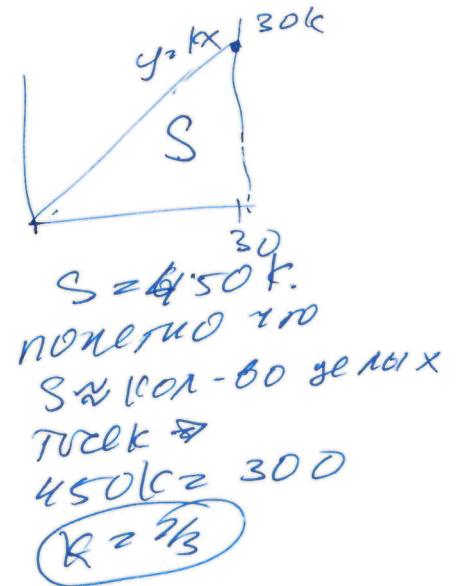 30k
y=kx
S
30
S = 450k.
понетно что
S ≈ кол-во целых
точек ⇒
450k = 300
k = 2/3